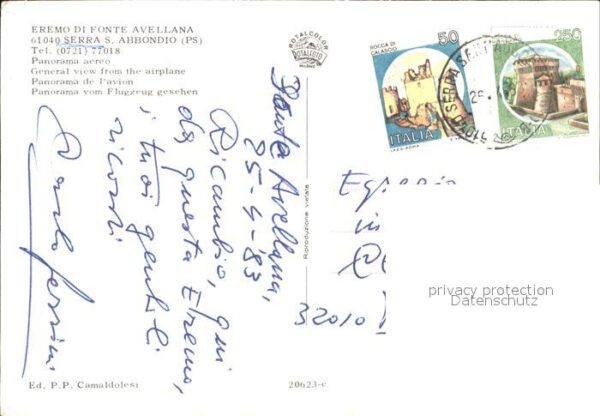 EREMO DI FONTE AVELLANA
61040 SERRA S. ABBONDIO (PS)
Tel. (0721) 77018
Panorama aereo
General view from the airplane
Panorama de l'avion
Panorama vom Flugzeug gesehen
ROTALCOLOR
ROTALFOTO
MILANO
ROCCA DI CALASCIO
50
ITALIA
250
ITALIA
Fonte Avellana,
25-4-'83
Ricambio, qui
da questo Eremo,
i tuoi gentili
ricordi
Riproduzione vietata
32010
privacy protection
Datenschutz
Ed. P.P. Camaldolesi
20623-c